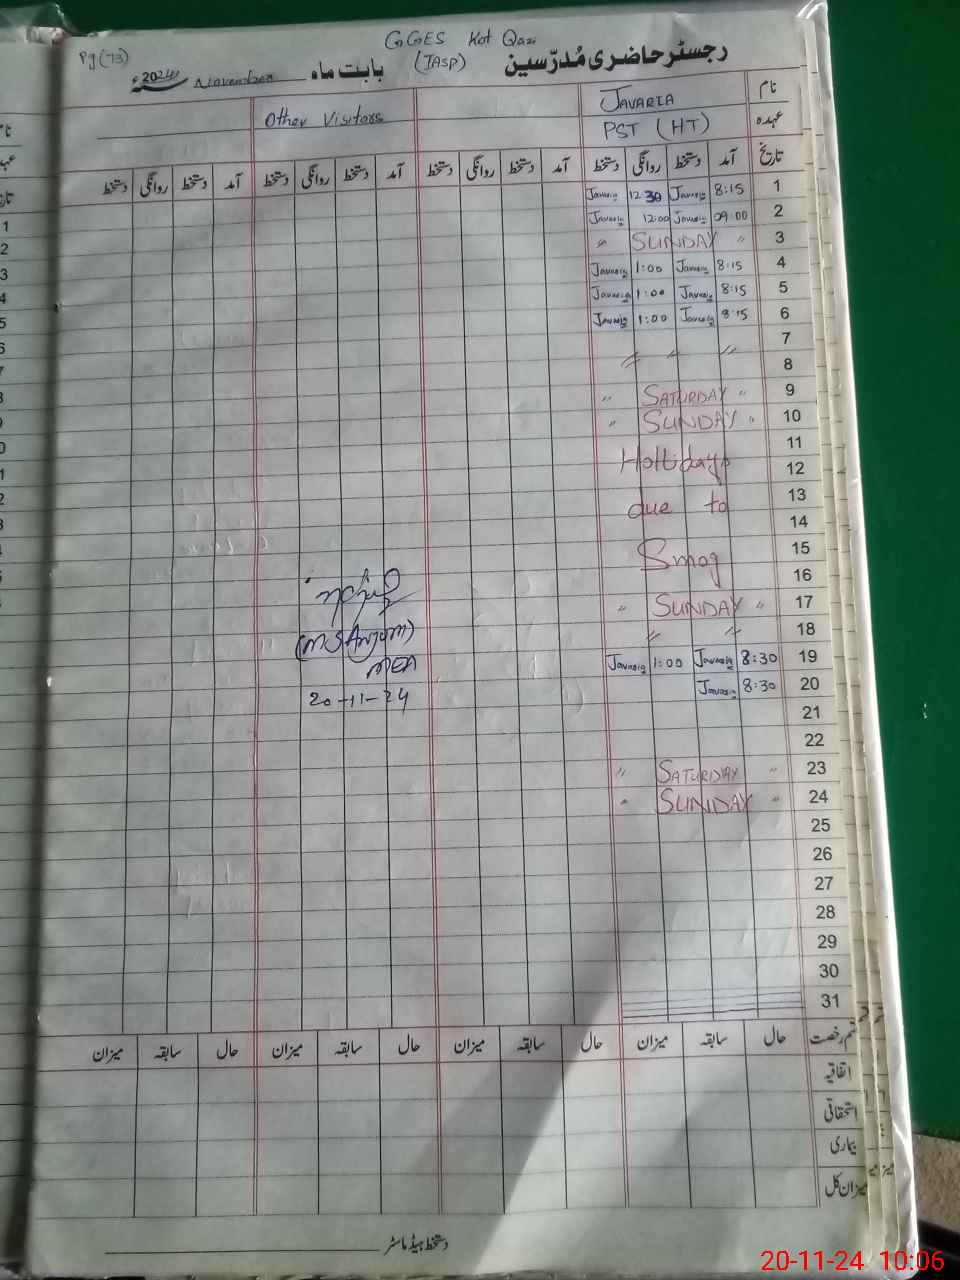 Pg (73)
GGES Kot Qazi
(IASP)
رجسٹر حاضری مُدرّسین
بابت ماہ November 2024ء
نام
JAVARIA
Other Visitors
عہدہ
PST (HT)
تاریخ آمد دستخط روانگی دستخط آمد دستخط روانگی دستخط آمد دستخط روانگی دستخط آمد دستخط روانگی دستخط
1 8:15 Javaria 12:30 Javaria
2 09:00 Javaria 12:00 Javaria
3 " SUNDAY "
4 8:15 Javaria 1:00 Javaria
5 8:15 Javaria 1:00 Javaria
6 8:15 Javaria 1:00 Javaria
7 " " "
8
9 " SATURDAY "
10 " SUNDAY "
11
Hollidays
12
13
due to
14
15
Smog
16
17 " SUNDAY "
18 " "
19 8:30 Javaria 1:00 Javaria
20 8:30 Javaria
(M S Anjum)
MEA
20-11-24
21
22
23 " SATURDAY "
24 " SUNDAY "
25
26
27
28
29
30
31
قسم رخصت حال سابقہ میزان حال سابقہ میزان حال سابقہ میزان حال سابقہ میزان
اتفاقیہ
استحقاقی
بیماری
میزان کل
دستخط ہیڈ ماسٹر
20-11-24 10:06